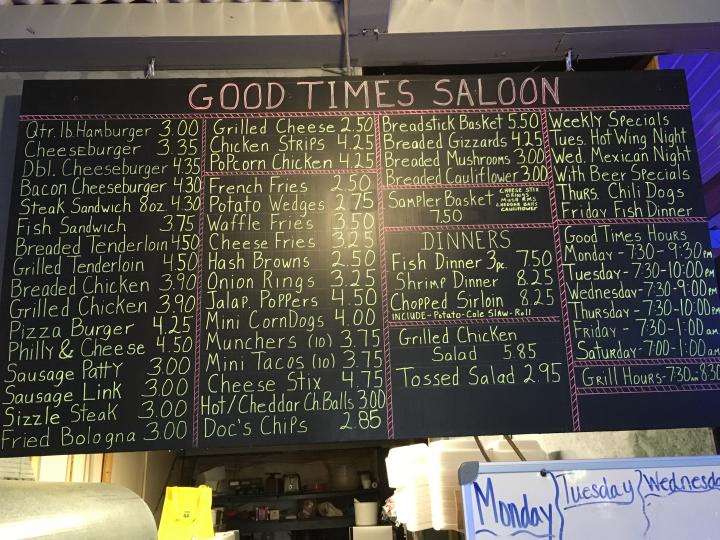 GOOD TIMES SALOON
Qtr. lb Hamburger 3.00
Cheeseburger 3.35
Dbl. Cheeseburger 4.35
Bacon Cheeseburger 4.30
Steak Sandwich 8oz 4.30
Fish Sandwich 3.75
Breaded Tenderloin 4.50
Grilled Tenderloin 4.50
Breaded Chicken 3.90
Grilled Chicken 3.90
Pizza Burger 4.25
Philly & Cheese 4.50
Sausage Patty 3.00
Sausage Link 3.00
Sizzle Steak 3.00
Fried Bologna 3.00
Grilled Cheese 2.50
Chicken Strips 4.25
PoPcorn Chicken 4.25
French Fries 2.50
Potato Wedges 2.75
Waffle Fries 3.50
Cheese Fries 3.25
Hash Browns 2.50
Onion Rings 3.25
Jalap. Poppers 4.50
Mini CornDogs 4.00
Munchers (10) 3.75
Mini Tacos (10) 3.75
Cheese Stix 4.75
Hot/Cheddar Ch. Balls 3.00
Doc's Chips 2.85
Breadstick Basket 5.50
Breaded Gizzards 4.25
Breaded Mushrooms 3.00
Breaded Cauliflower 3.00
Sampler Basket
7.50
CHEESE STIX
CAULIFLOWER
DINNERS
Fish Dinner 3pc. 7.50
Shrimp Dinner 8.25
Chopped Sirloin 8.25
INCLUDE-Potato-Cole Slaw-Roll
Grilled Chicken
Salad 5.85
Tossed Salad 2.95
Weekly Specials
Tues. Hot Wing Night
Wed. Mexican Night
With Beer Specials
Thurs. Chili Dogs
Friday Fish Dinner
Good Times Hours
Monday - 7:30 - 9:30PM
Tuesday - 7:30-10:00PM
Wednesday - 7:30-9:00PM
Thursday - 7:30-10:00PM
Friday - 7:30 - 1:00am
Saturday - 7:00-1:00am
Grill Hours-7:30am-8:30
Monday
Tuesday
Wednesda